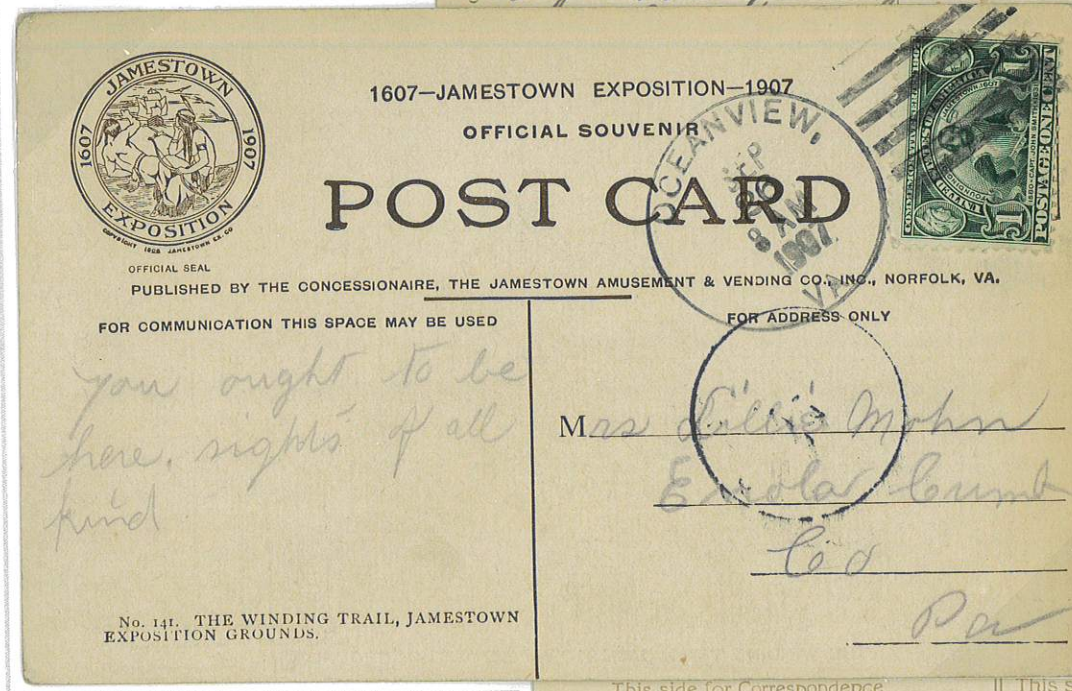 JAMESTOWN
1607 1907
EXPOSITION
COPYRIGHT 1905 JAMESTOWN EX. CO
OFFICIAL SEAL
1607—JAMESTOWN EXPOSITION—1907
OFFICIAL SOUVENIR
POST CARD
OCEANVIEW,
SEP
8 AM
1907
VA
UNITED STATES OF AMERICA
POSTAGE ONE CENT
1 1
PUBLISHED BY THE CONCESSIONAIRE, THE JAMESTOWN AMUSEMENT & VENDING CO., INC., NORFOLK, VA.
FOR COMMUNICATION THIS SPACE MAY BE USED
you ought to be
here. sights of all
kind
No. 141. THE WINDING TRAIL, JAMESTOWN
EXPOSITION GROUNDS.
FOR ADDRESS ONLY
Mrs Lillie Mohn
Enola Cumb
Co
Pa
This side for Correspondence